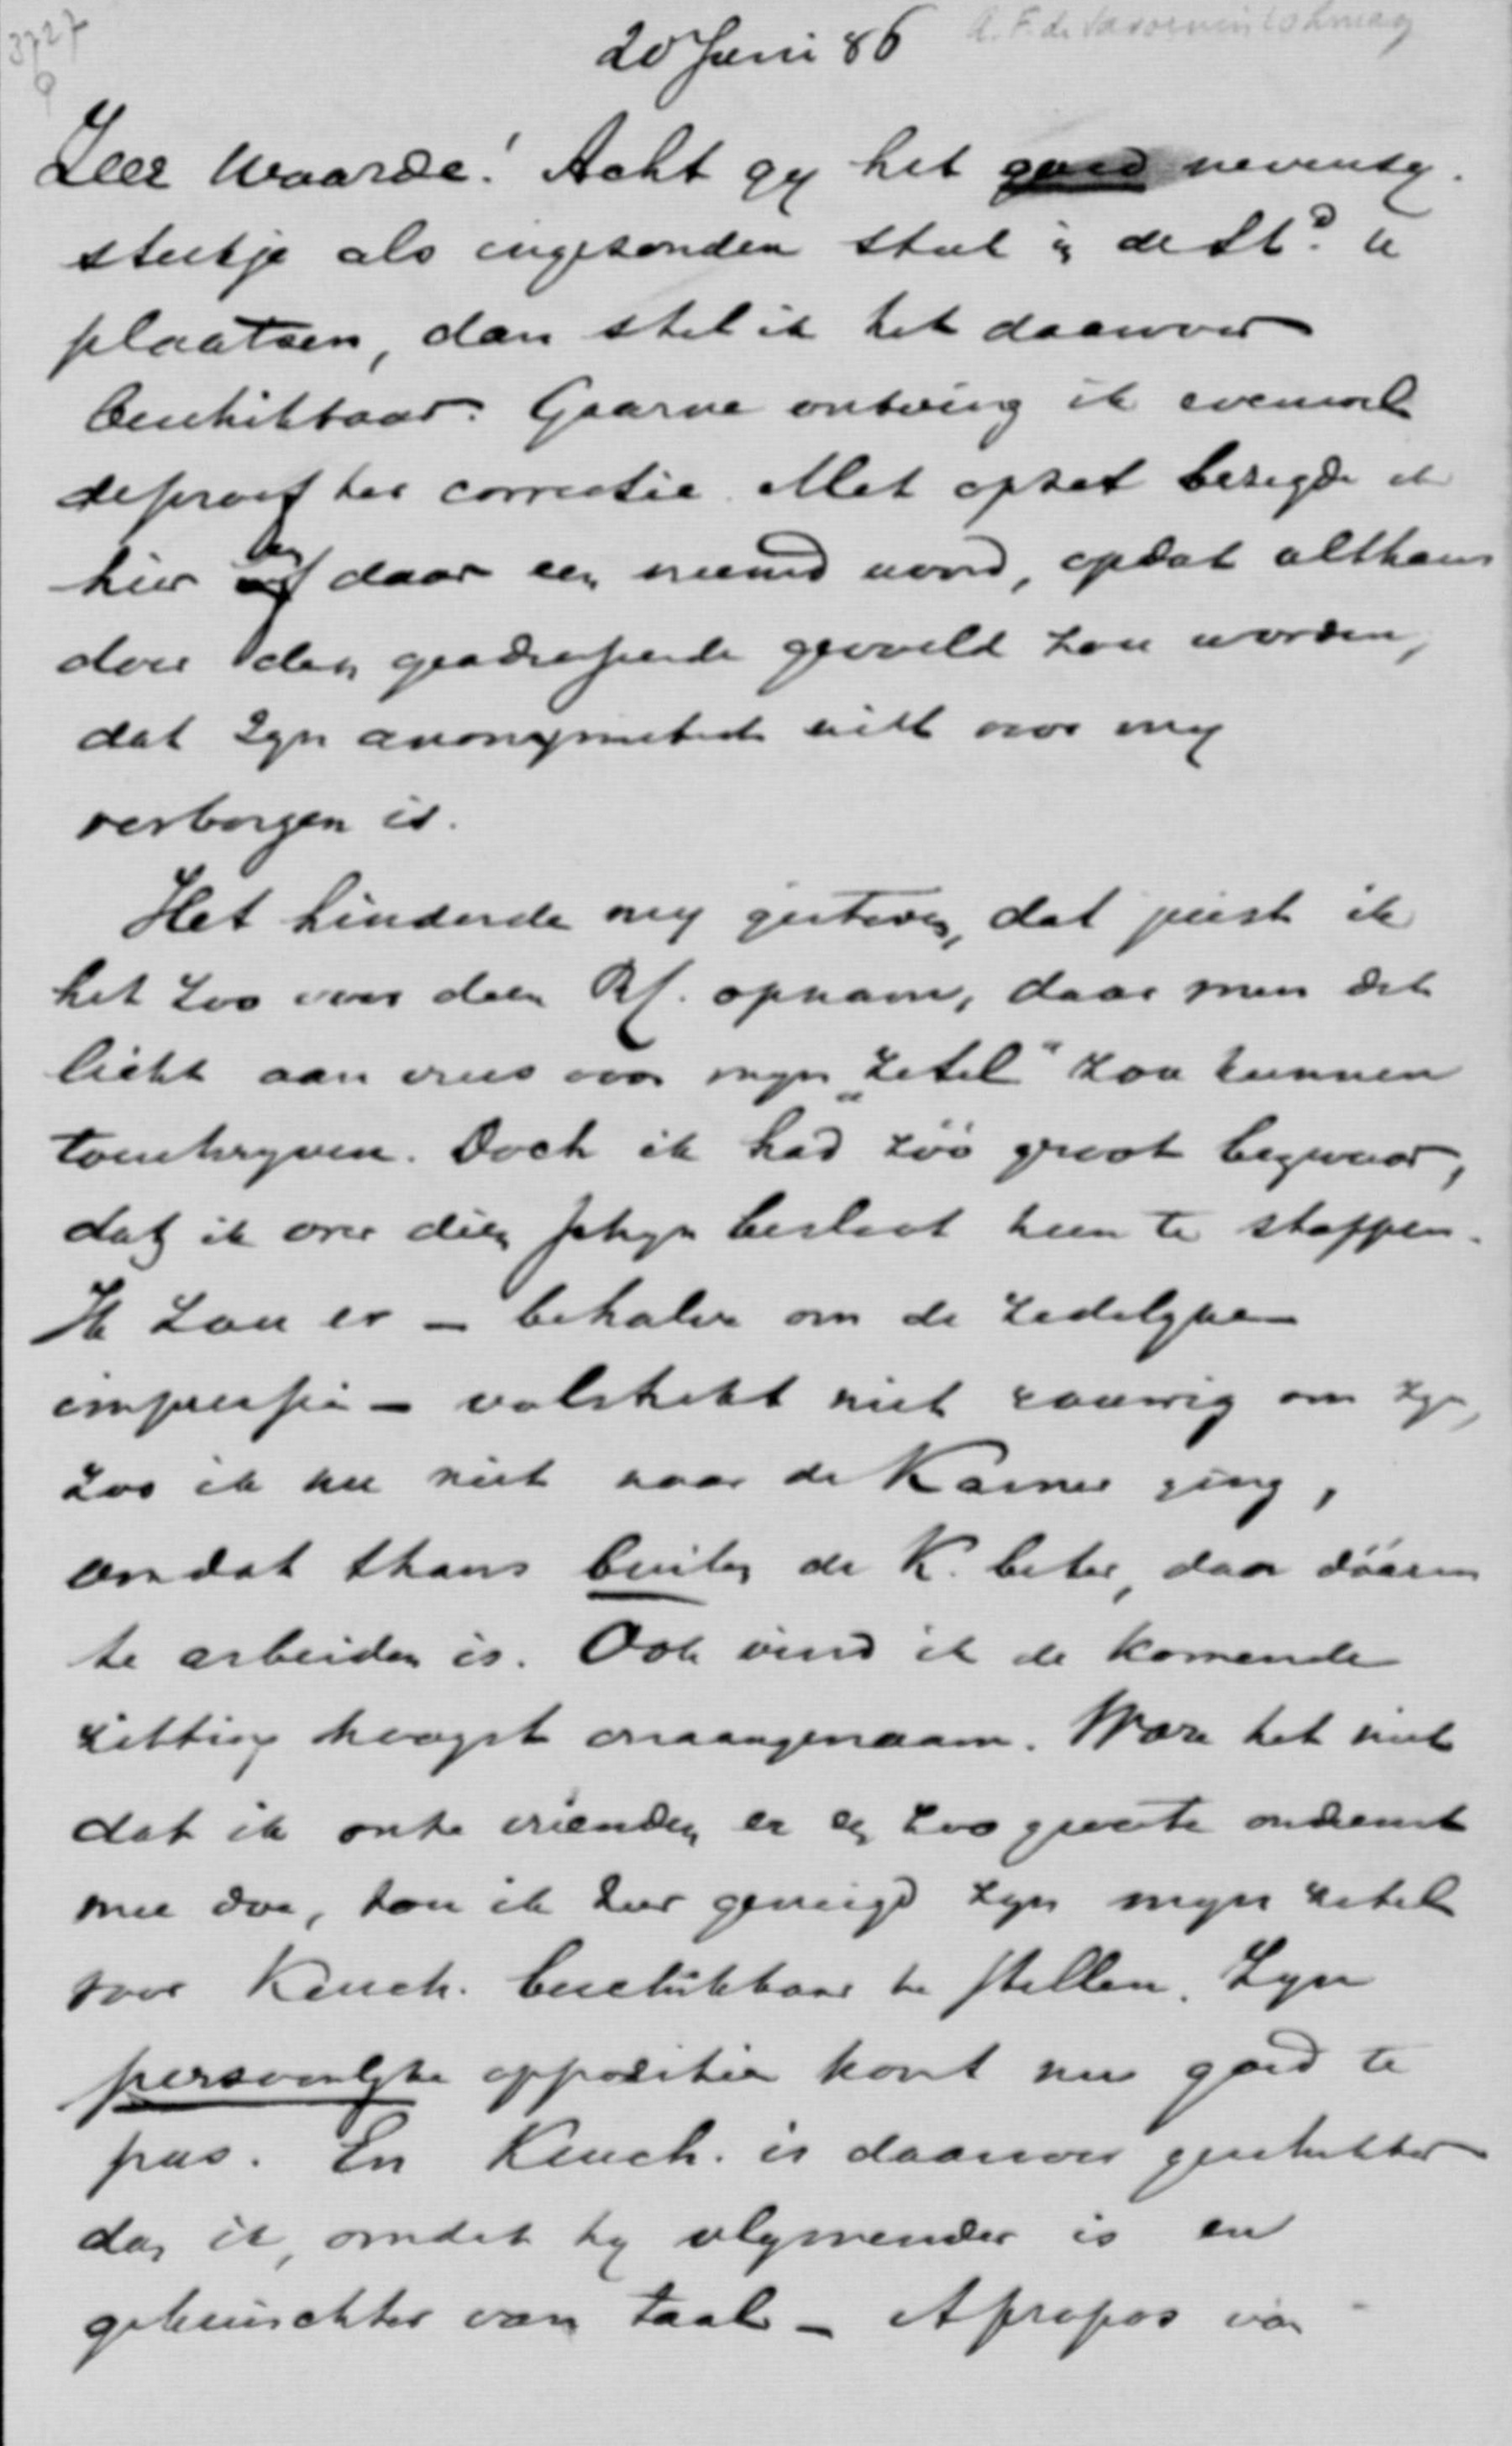 3727
9
20 Juni 86
A. F. de Savornin Lohman
Zeer Waarde! Acht gy het goed nevensg.
stukje als ingezonden stuk in de Std. te
plaatsen, dan stel ik het daarvoor
beschikbaar. Gaarne ontving ik evenwel
de proef ter correctie. Met opzet bezigde ik
hier en daar een vreemd woord, opdat althans
door den geadresseerde gevoeld zou worden,
dat zyn anonymiteit niet voor my
verborgen is.
Het hinderde my gisteren, dat juist ik
het zoo voor den Rf. opnam, daar men dit
licht aan vrees voor myn „zetel" zou kunnen
toeschryven. Doch ik had zóó groot bezwaar,
dat ik over dien schyn besloot heen te stappen.
Ik zou er - behalve om de zedelyke
impressie - volstrekt niet rouwig om zyn,
zoo ik nu niet naar de Kamer ging,
omdat thans buiten de K. beter, dan dáárin
te arbeiden is. Ook vind ik de komende
zitting hoogst onaangenaam. Ware het niet
dat ik onze vrienden er en zoo groote ondienst
mee doe, zou ik zeer geneigd zyn myn zetel
voor Keuch. beschikbaar te stellen. Zyn
persoonlyke oppositie komt nu goed te
pas. En Keuch. is daarvoor geschikter
dan ik, omdat hy vlymender is en
gekuischter van taal - Apropos van